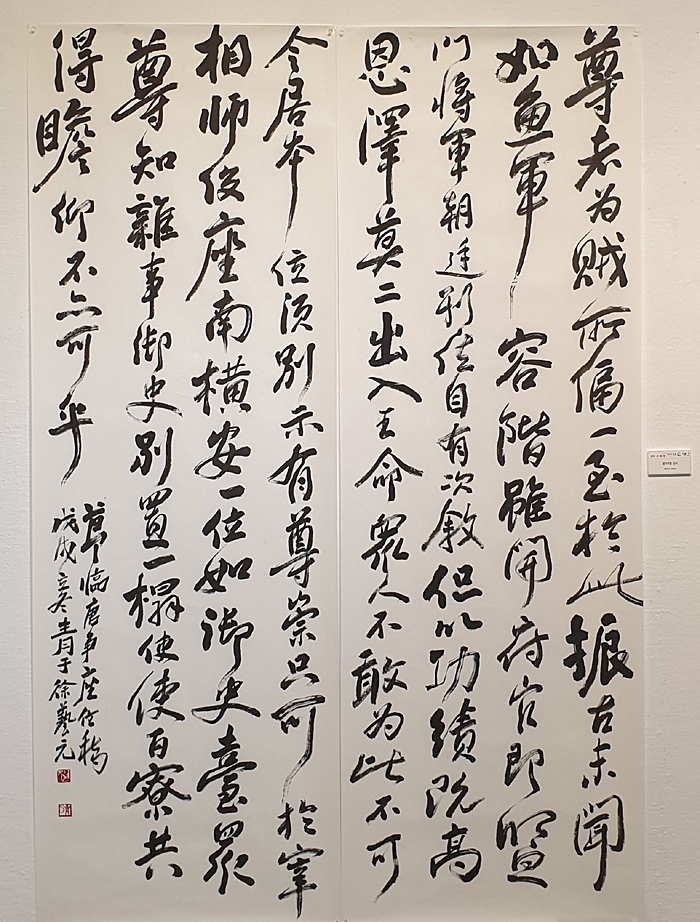 尊者为賊所偪一至於此振古未聞
如魚軍容階雖開府官即監
門將軍朝廷列位自有次敘但以功績既高
恩澤莫二出入王命眾人不敢为比不可
令居本位須別示有尊崇只可於宰
相師保座南橫安一位如御史臺眾
尊知雜事御史別置一榻使使百寮共
得瞻仰不亦可乎
節臨唐爭座位稿
戊戌立冬青月于徐藝元